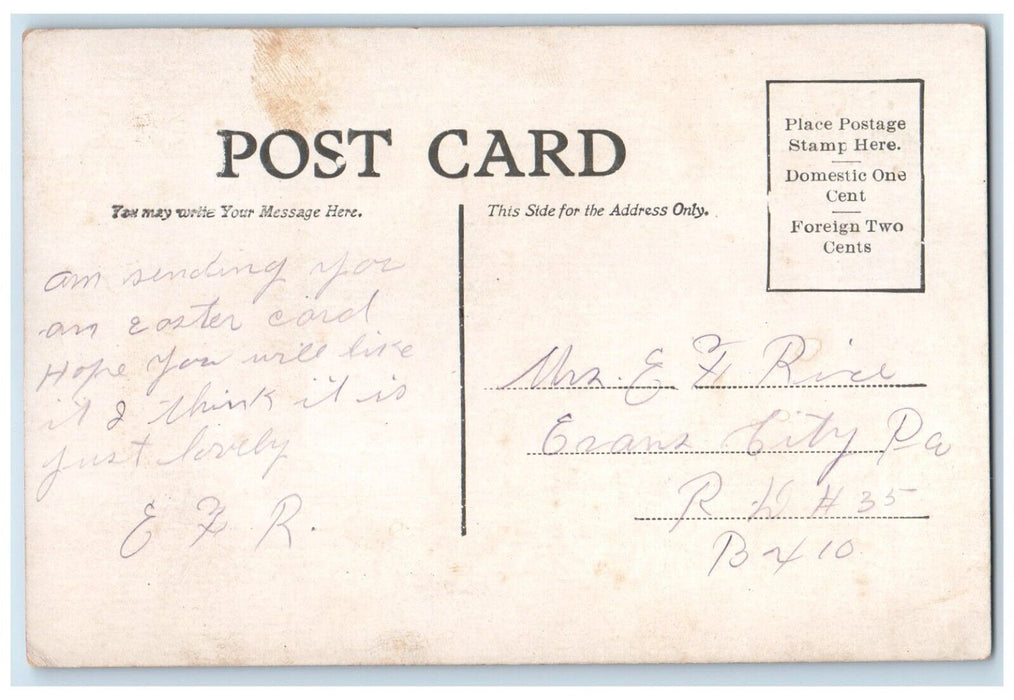 POST CARD
You may write Your Message Here.
This Side for the Address Only.
Place Postage
Stamp Here.
Domestic One
Cent
Foreign Two
Cents
am sending you
an Easter card
Hope you will like
it I think it is
just lovely
E F R.
Mrs. E F Rice
Evans City Pa
R D # 35
Bx 10